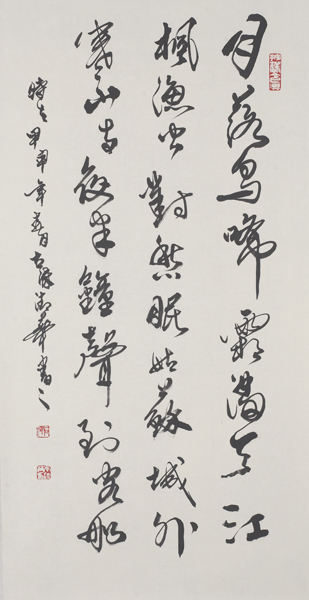 月落烏啼霜滿天江
楓漁火對愁眠姑蘇城外
寒山寺夜半鐘聲到客船
時在甲申年春月書之